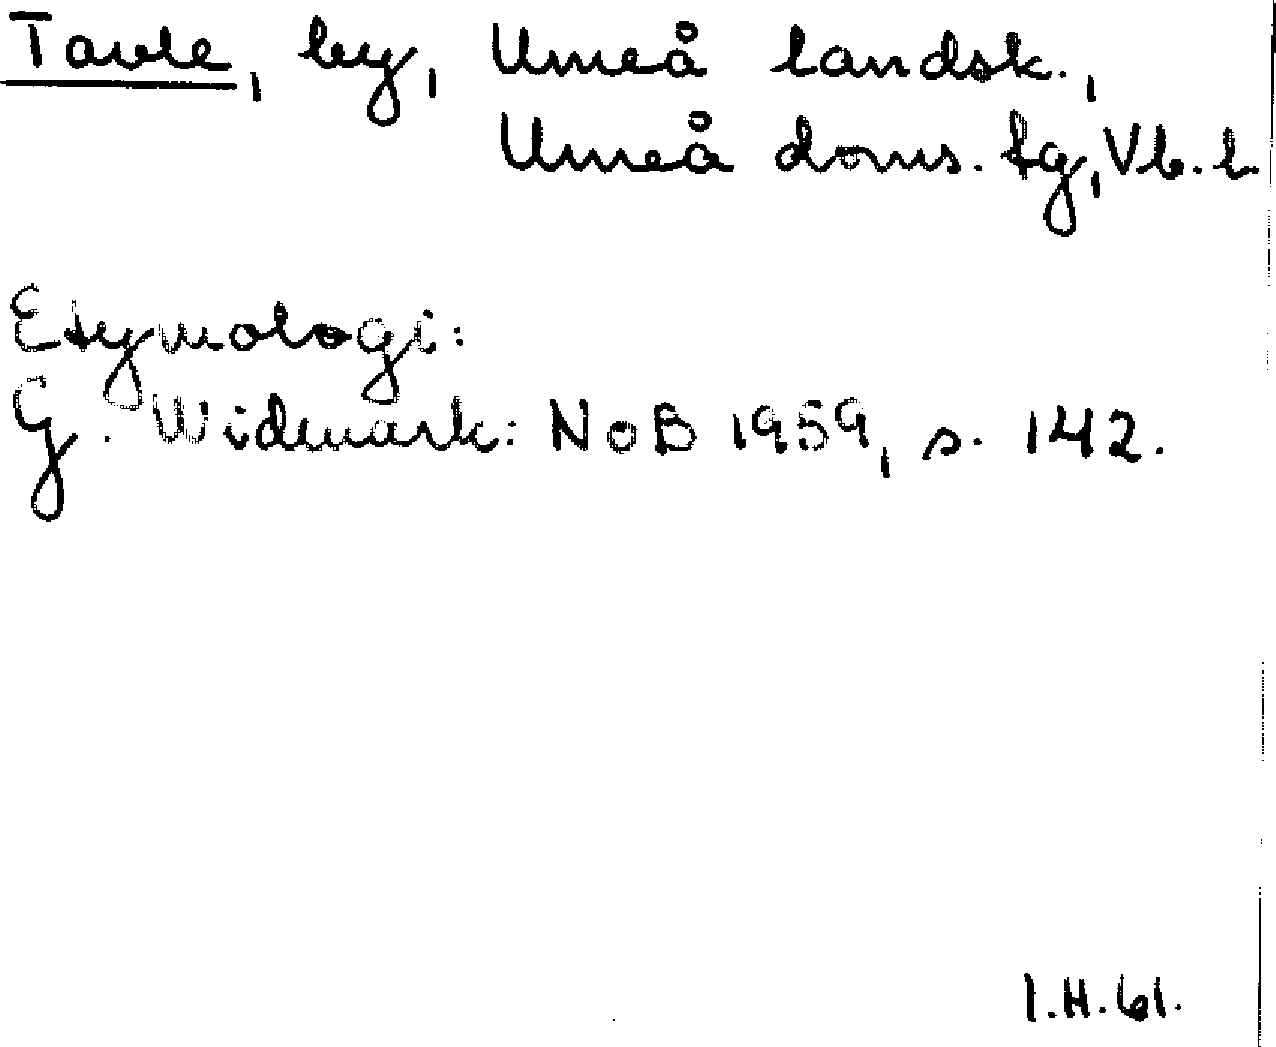 Tavle, by, Umeå landsk.,
Umeå doms. tg, Vb. l.
Etymologi:
G. Widmark: NoB 1959, s. 142.
I.H.61.